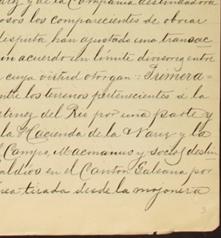 y de la Compañía deslindadora
osos los comparecientes de obviar
disputa han ajustado una transac
un acuerdo un límite diverso entre
cuya virtud otorgan: Primera
entre los terrenos pertenecientes á la
tinez del Rio por una parte y
la Hacienda de la Nariz y la
l Campo, Macmanus y socios deslin
aldios en el Canton Galeana por
nea tirada desde la mojonera